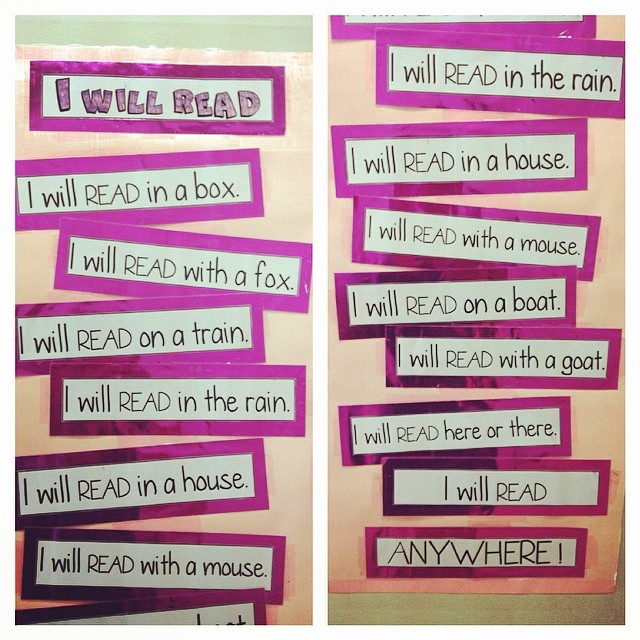 I WILL READ
I will READ in a box.
I will READ with a fox.
I will READ on a train.
I will READ in the rain.
I will READ in a house.
I will READ with a mouse.
I will READ in the rain.
I will READ in a house.
I will READ with a mouse.
I will READ on a boat.
I will READ with a goat.
I will READ here or there.
I will READ
ANYWHERE!